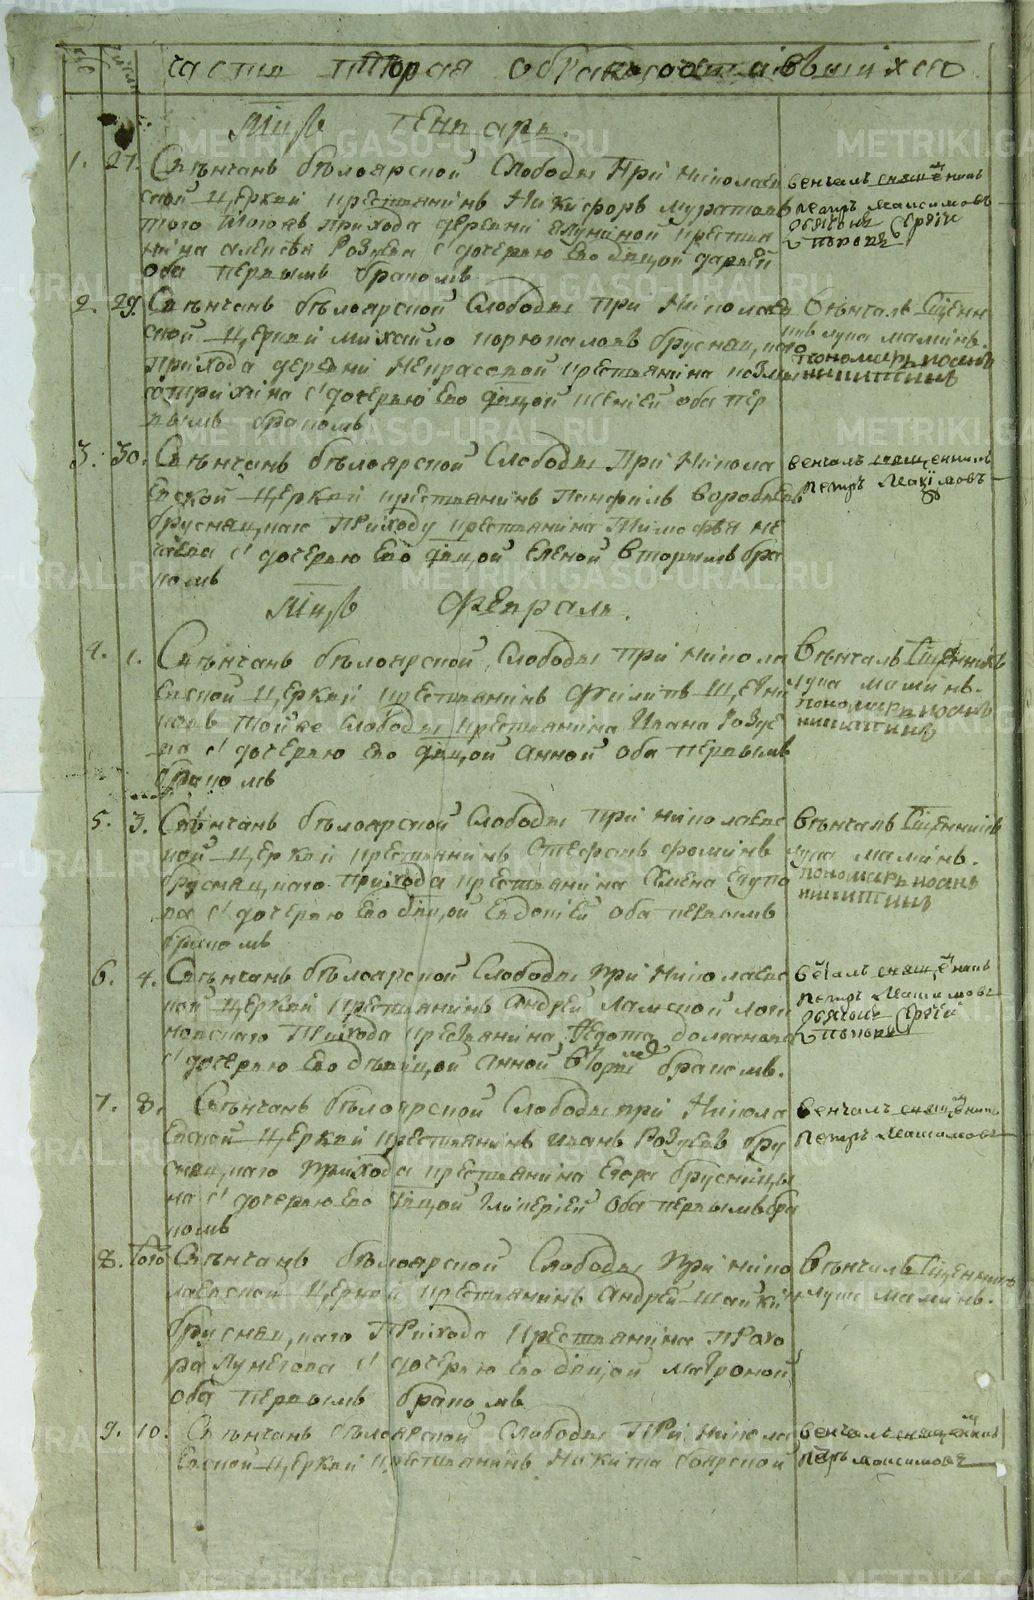 часть вторая о бракосочтавшихся
Мцъ Генварь.
1. 27. Свѣнчанъ бѣлоярской Слободы При Николаев
ской церкви крестьянинъ Никифоръ Муратовъ
того прихода деревни крестья
нина Алексѣя с дочерью Ево дѣвицой дарьей
оба первымъ бракомъ
венчалъ священникъ
Петръ Максимовъ
2. 29. Свѣнчанъ бѣлоярской Слободы при Николаев
ской церкви михайло бруснян,каго
прихода деревни Некрасовой крестьянина
с дочерью Ево дѣвицой оба пер
вымъ бракомъ
Вѣнчалъ Сщенни
къ лука маминъ.
пономарь иоанъ
никитинъ
3. 30. Свѣнчанъ бѣлоярской Слободы При Никола
евской церкви крестьянинъ Панфилъ воробьевъ
бруснян,каго Приходу крестьянина Тимофѣя не
чаева с дочерью Ево дѣвицой Еленой вторымъ бра
комъ
венчалъ священникъ
Петръ Максимовъ
Мцъ Февраль.
4. 1. Свѣнчанъ бѣлоярской Слободы при никола
евской церкви крестьянинъ филипъ
тойже Слободы крестьянина Ивана Розуе
ва с дочерью Ево дѣвицой Анной оба первымъ
бракомъ
Вѣнчалъ Сщенникъ
лука маминъ.
пономарь иоанъ
никитинъ
5. 3. Свѣнчанъ бѣлоярской Слободы при николаевс
кой церкви крестьянинъ Стефанъ фоминъ
бруснян,каго прихода крестьянина Семена
с дочерью Ево дѣвицой Евдокией оба первымъ
бракомъ
Вѣнчалъ Сщенникъ
лука маминъ.
пономарь иоанъ
никитинъ
6. 4. Свѣнчанъ бѣлоярской Слободы при Николаевс
кой церкви крестьянинъ андрей ламской логи
новскаго Прихода крестьянина Федота
с дочерью Ево дѣвицой Анной бракомъ.
венчалъ священникъ
Петръ Максимовъ
7. 8. Свѣнчанъ бѣлоярской Слободы при Никола
евской церкви крестьянинъ иванъ Розуевъ бру
снян,каго прихода крестьянина Егора брусницы
на с дочерью Ево дѣвицой Гликерией Оба первымъ бра
комъ
венчалъ священникъ
Петръ Максимовъ
8. Того Свѣнчанъ бѣлоярской Слободы при нико
лаевской церкви крестьянинъ Андрей шайки
бруснян,каго Прихода крестьянина Прохо
ра Лунегова с дочерью Ево дѣвицой матроной
оба первымъ бракомъ
Вѣнчалъ Сщенникъ
лука маминъ.
9. 10. Свѣнчанъ бѣлоярской Слободы при никола
евской церкви крестьянинъ Никита боярской
венчалъ священникъ
Петръ Максимовъ
METRIKI.GASO-URAL.RU